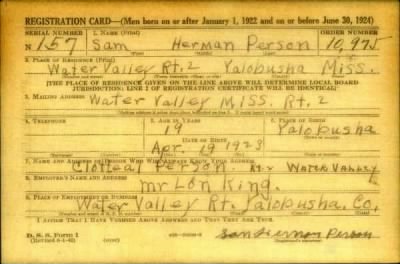 REGISTRATION CARD—(Men born on or after January 1, 1922 and on or before June 30, 1924)
SERIAL NUMBER 1. NAME (Print) ORDER NUMBER
N 157 Sam Herman Person 10,975
2. PLACE OF RESIDENCE (Print)
Water Valley Rt. 2 Yalobusha Miss.
[THE PLACE OF RESIDENCE GIVEN ON THE LINE ABOVE WILL DETERMINE LOCAL BOARD
JURISDICTION; LINE 2 OF REGISTRATION CERTIFICATE WILL BE IDENTICAL]
3. MAILING ADDRESS
Water Valley Miss. Rt. 2
4. TELEPHONE 5. AGE IN YEARS 6. PLACE OF BIRTH
19 Yalobusha
DATE OF BIRTH
Apr. 19 1923
7. NAME AND ADDRESS OF PERSON WHO WILL ALWAYS KNOW YOUR ADDRESS
Person Rt. 2 Water Valley
8. EMPLOYER'S NAME AND ADDRESS
Mr Lon King.
9. PLACE OF EMPLOYMENT OR BUSINESS
Water Valley Rt. Yalobusha. Co.
I AFFIRM THAT I HAVE VERIFIED ABOVE ANSWERS AND THAT THEY ARE TRUE.
D. S. S. Form 1
Sam Herman Person